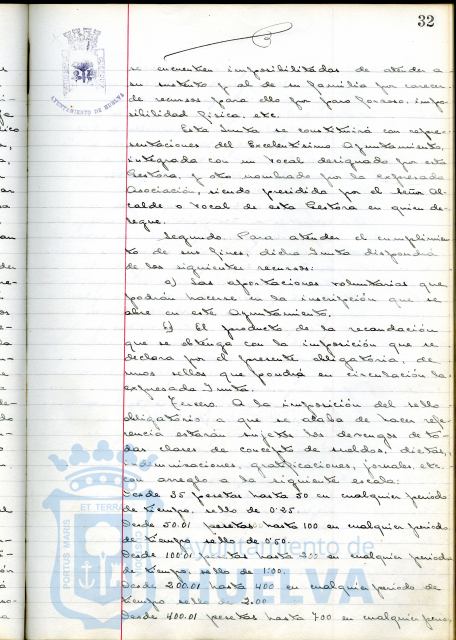 32
AYUNTAMIENTO DE HUELVA
se encuentren imposibilitadas de atender a
su sustento y al de su familia por carecer
de recursos para ello por paro forzoso, impo-
sibilidad física, etc.
Esta Junta se constituirá con repre-
sentaciones del Excelentísimo Ayuntamiento,
integrada con un vocal designado por esta
Gestora, y otro nombrado por la expresada
Asociación, siendo presidida por el señor Al-
calde o vocal de esta Gestora en quien de-
legue.
Segundo. Para atender el cumplimien-
to de sus fines, dicha Junta dispondrá
de los siguientes recursos:
a) Las aportaciones voluntarias que
podrán hacerse en la inscripción que se
abre en este Ayuntamiento.
b) El producto de la recaudación
que se obtenga con la imposición que se
declara por el presente obligatoria, de
unos sellos que pondrá en circulación la
expresada Junta.
Tercero. A la imposición del sello
obligatorio a que se acaba de hacer refe-
rencia estarán sujetos los devengos de to-
das clases de concepto de sueldos, dietas,
indemnizaciones, gratificaciones, jornales, etc.
con arreglo a la siguiente escala:
Desde 25 pesetas hasta 50 en cualquier periodo
de tiempo, sello de 0'25.
Desde 50.01 pesetas hasta 100 en cualquier periodo
de tiempo, sello de 0'50.
Desde 100.01 pesetas hasta 200 en cualquier periodo
de tiempo, sello de 1'00.
Desde 200.01 hasta 400 en cualquier periodo de
tiempo sello de 2.00
Desde 400.01 pesetas hasta 700 en cualquier perio-
PORTUS MARIS ET TERRAE
Ayuntamiento de
HUELVA